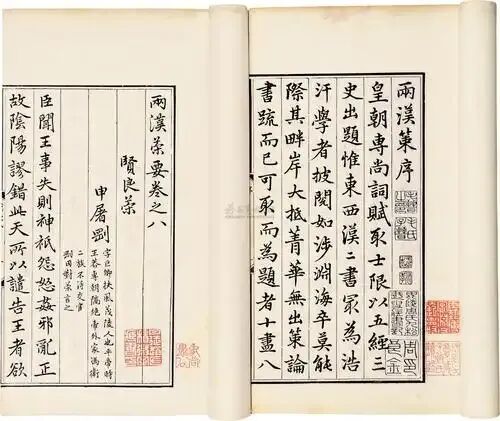 兩漢策序
皇朝專尚詞賦取士限以五經三
史出題惟東西漢二書寂為浩
汗學者披閱如涉淵海卒莫能
際其畔岸大抵菁華無出策論
書疏而已可取而為題者十盡八
兩漢策要卷之八
賢良策
申屠剛
字巨卿扶風茂陵人也平帝時
王莽專朝隔絶帝外家馮衛
二族不得交宦
剛因對策言之
臣聞王事失則神祇怨怒姦邪亂正
故陰陽謬錯此天所以譴告王者欲